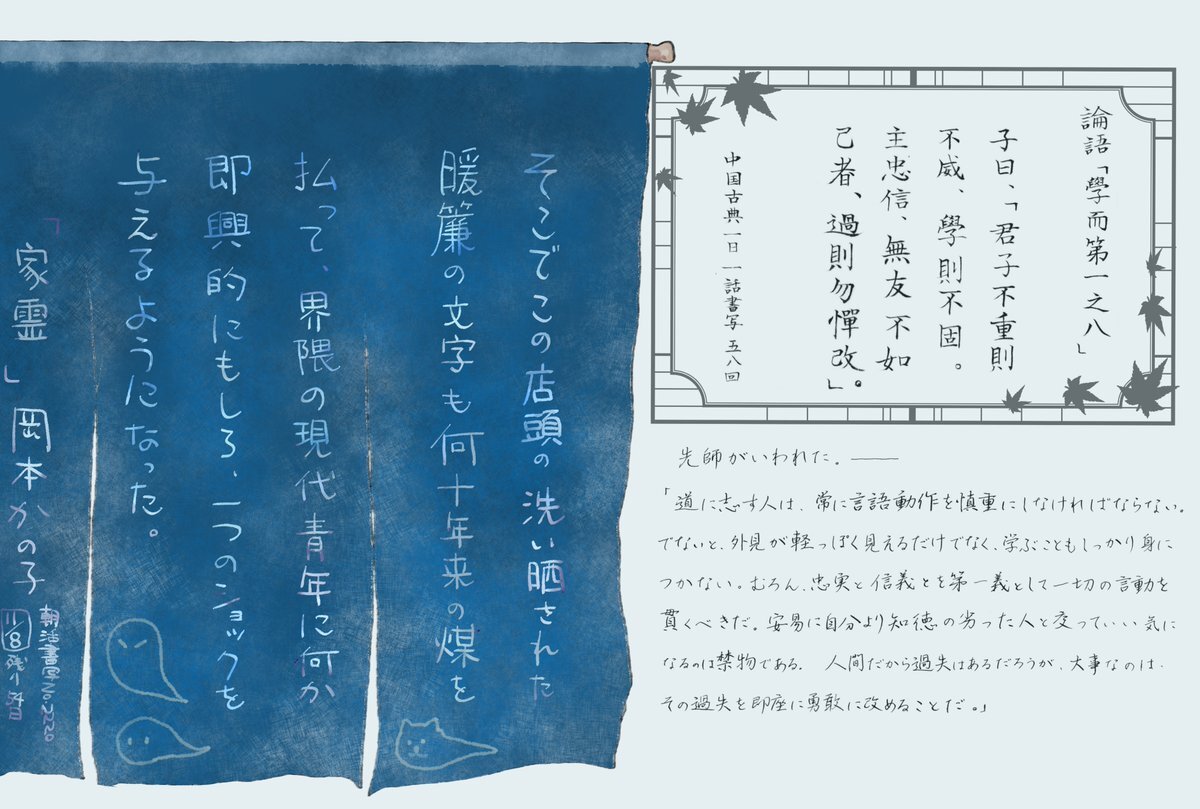 論語「學而第一之八」
子曰、「君子不重則
不威、學則不固。
主忠信、無友不如
己者、過則勿憚改」。
中国古典一日一話書写 五八回
先師がいわれた。――
「道に志す人は、常に言語動作を慎重にしなければならない。
でないと、外見が軽っぽく見えるだけでなく、学ぶこともしっかり身に
つかない。むろん、忠実と信義とを第一義として一切の言動を
貫くべきだ。安易に自分より知徳の劣った人と交っていい気に
なるのは禁物である。 人間だから過失はあるだろうが、大事なのは、
その過失を即座に勇敢に改めることだ。」
そこでこの店頭の洗い晒された
暖簾の文字も何十年来の煤を
払って、界隈の現代青年に何か
即興的にもしろ、一つのショックを
与えるようになった。
「家霊」岡本かの子
朝活書写No.2220
11/8